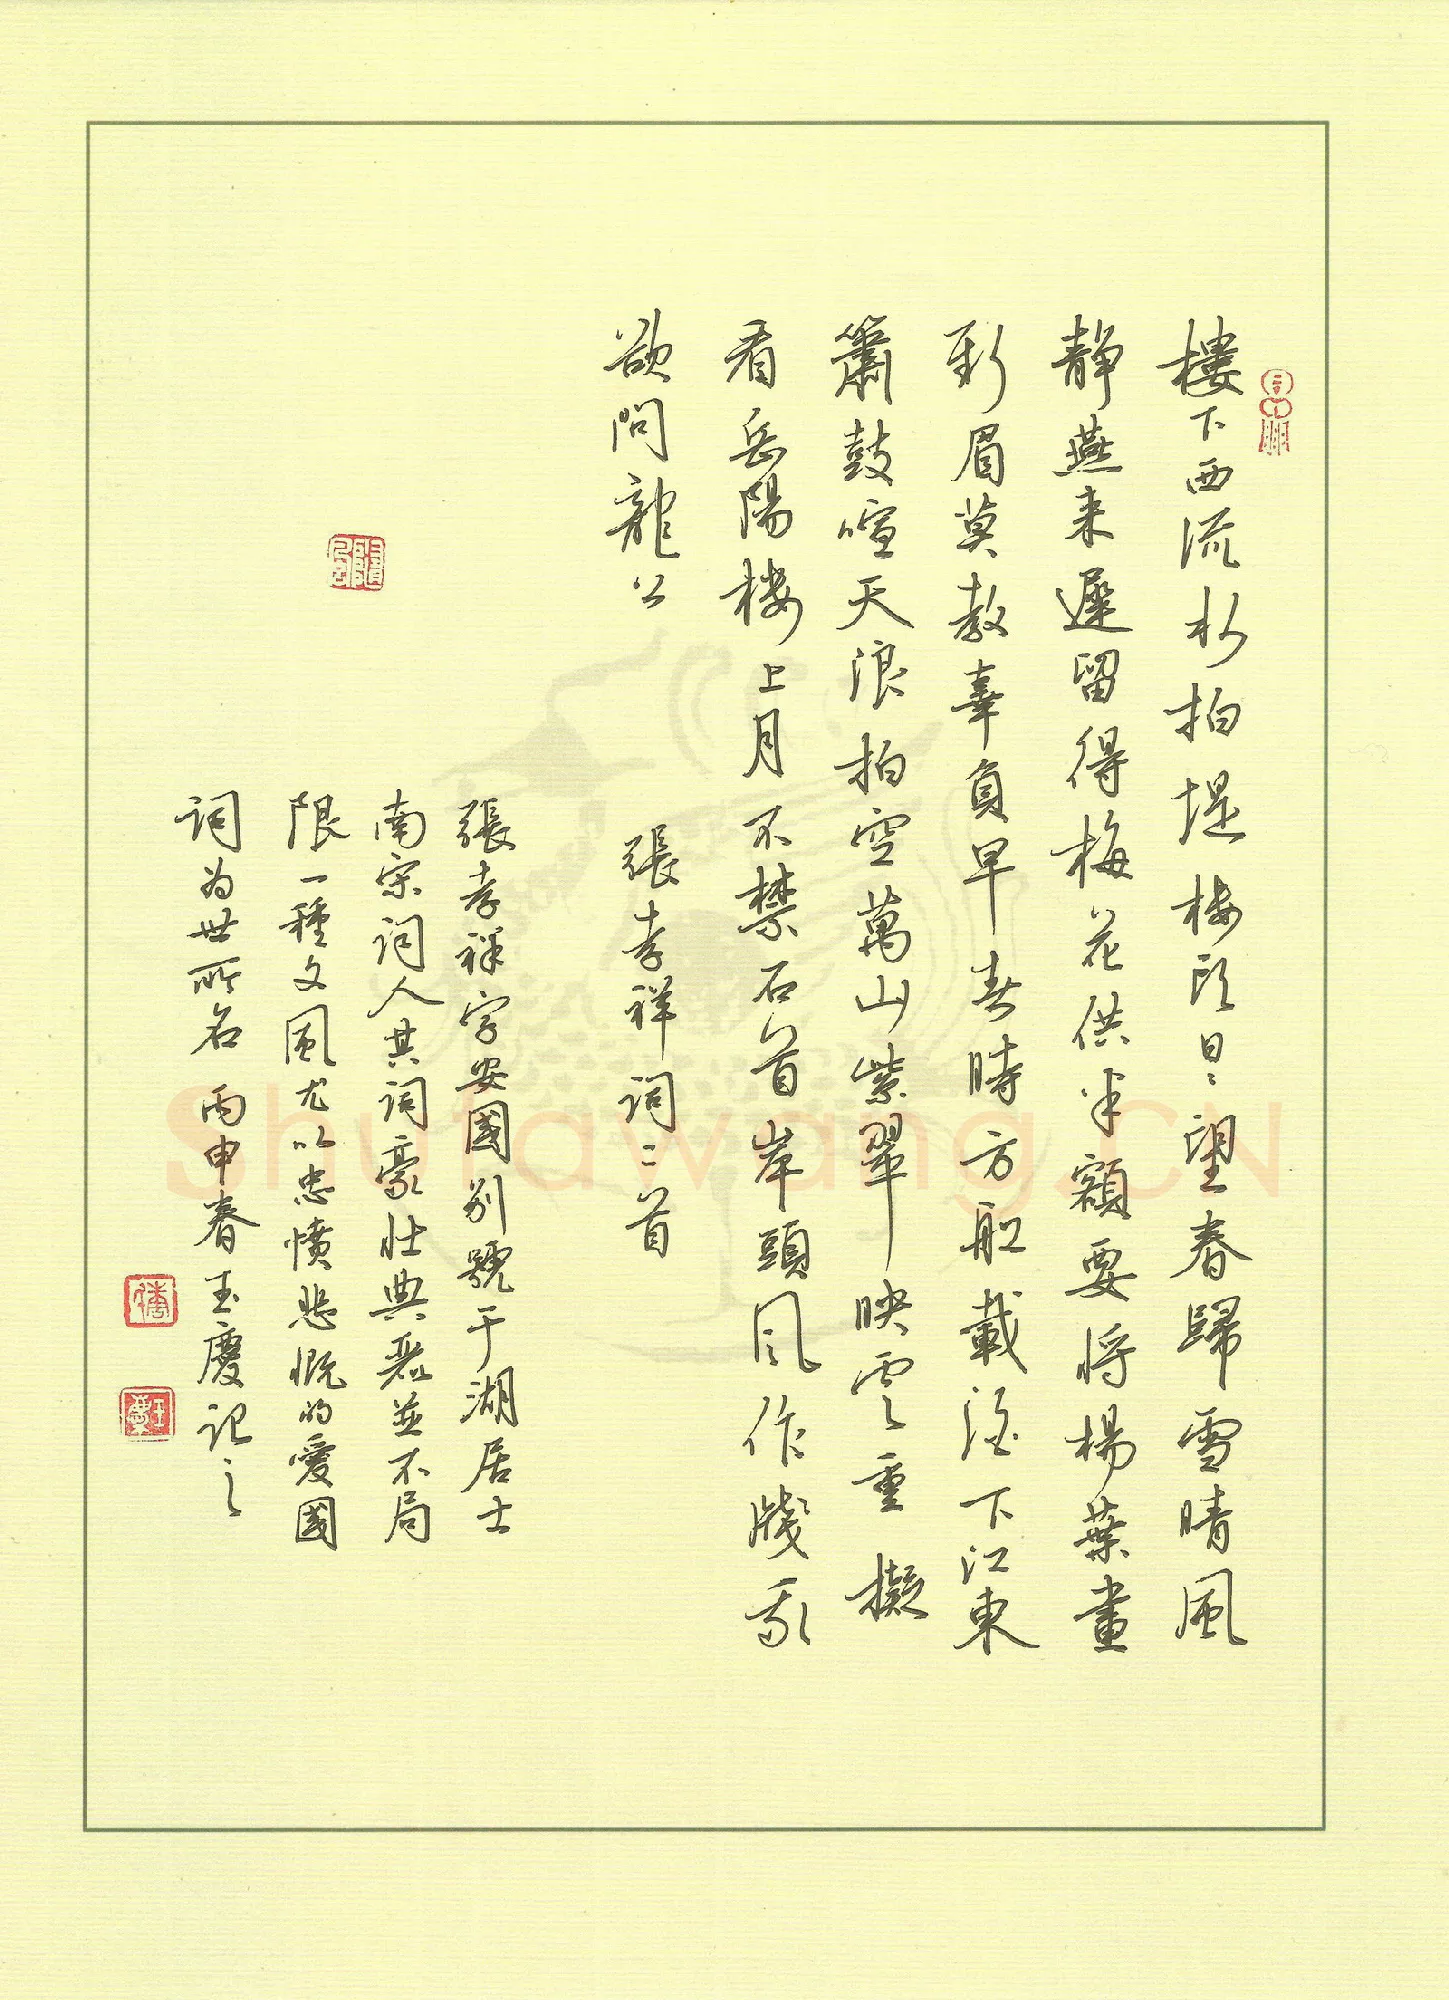 樓下西流水拍堤樓頭日日望春歸雪晴風
靜燕來遲留得梅花供半額要將楊葉畫
新眉莫教辜負早春時方舡載酒下江東
簫鼓喧天浪拍空萬山紫翠映雲重擬
看岳陽樓上月不禁石首岸頭風作牋我
欲問龍公
張孝祥詞二首
張孝祥字安國別號于湖居士
南宋詞人其詞豪壯典麗並不局
限一種文風尤以忠憤悲慨的愛國
詞为世所名丙申春玉慶記之
Shufawang.CN